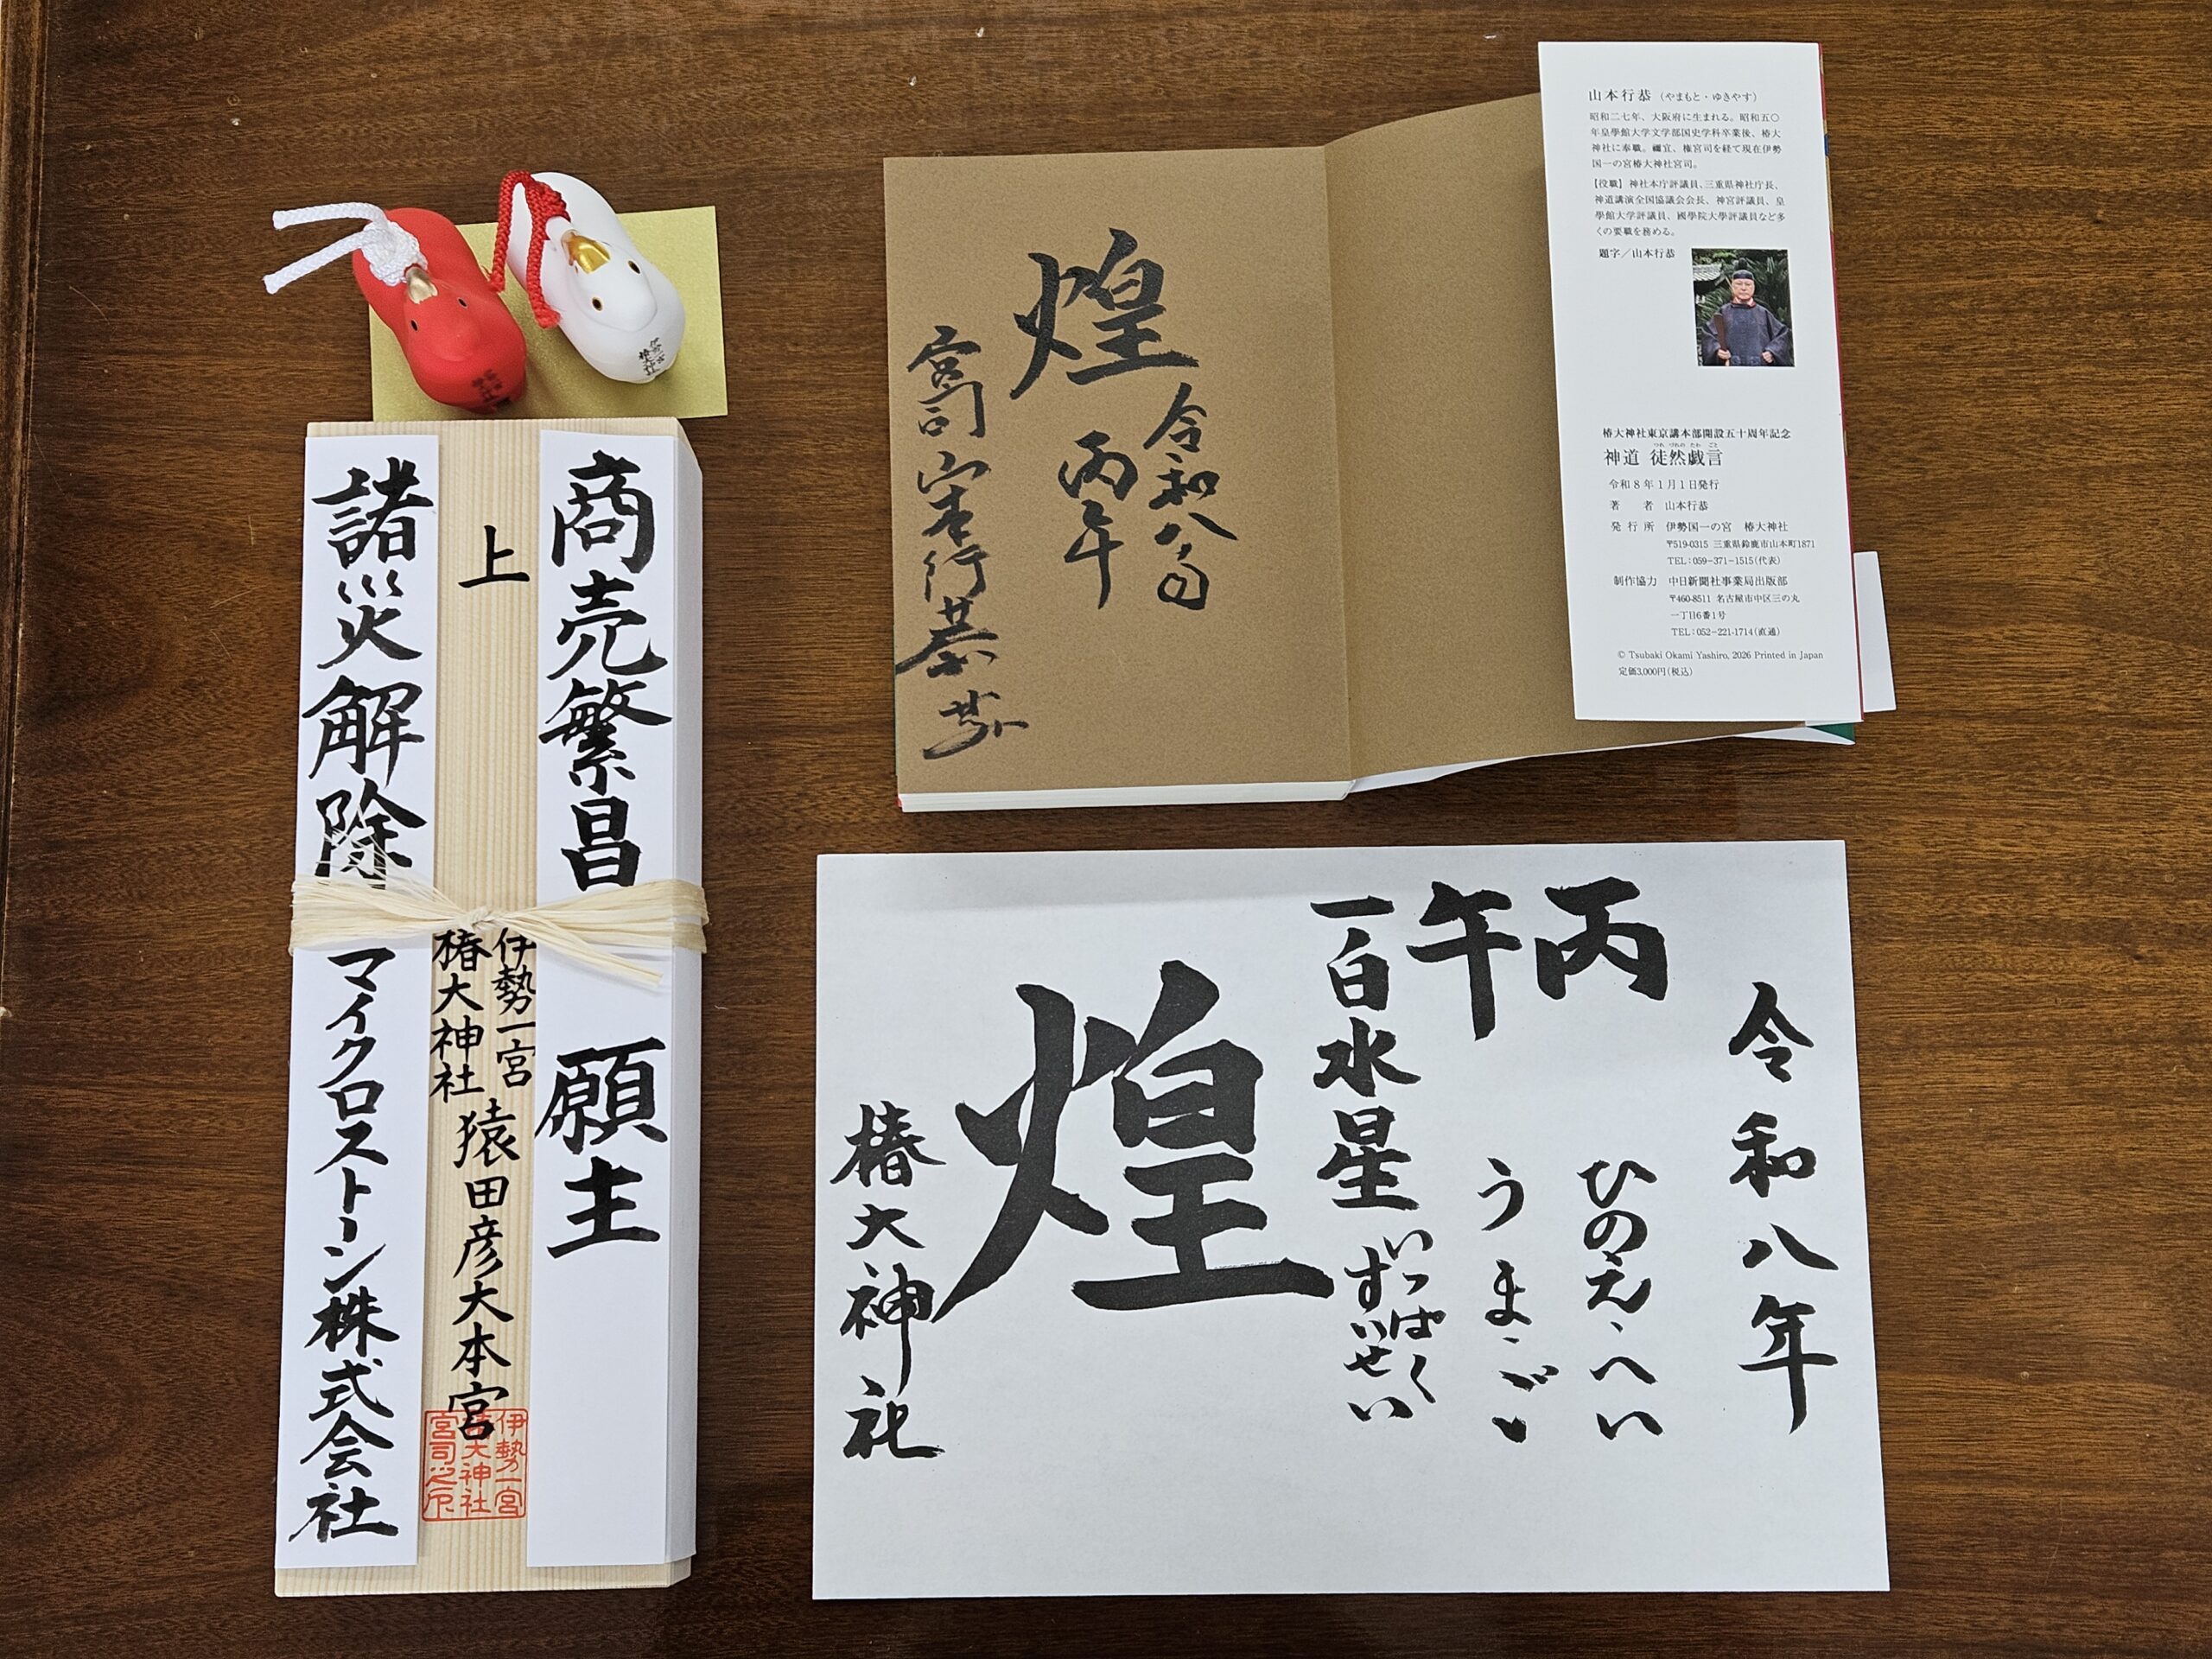 商売繁昌 願主
上
伊勢一宮
椿大神社
猿田彦大本宮
諸災解除 マイクロストーン株式会社
伊勢一宮
大神社
宮司之印
煌
令和八年
丙午
宮司 山本行恭
山本行恭(やまもと・ゆきやす)
昭和二七年、大阪府に生まれる。昭和五〇
年皇學館大学文学部国史学科卒業後、椿大
神社に奉職。禰宜、権宮司を経て現在伊勢
国一の宮椿大神社宮司。
【役職】神社本庁評議員、三重県神社庁長、
神道講演全国協議会会長、神宮評議員、皇
學館大学評議員、國學院大學評議員など多
くの要職を務める。
題字/山本行恭
椿大神社東京講本部開設五十周年記念
つれづれのたわごと
神道 徒然戯言
令和8年1月1日発行
著 者 山本行恭
発行所 伊勢国一の宮 椿大神社
〒519-0315 三重県鈴鹿市山本町1871
TEL:059-371-1515(代表)
制作協力 中日新聞社事業局出版部
〒460-8511 名古屋市中区三の丸
一丁目6番1号
TEL:052-221-1714(直通)
© Tsubaki Okami Yashiro, 2026 Printed in Japan
定価3,000円(税込)
令和八年
丙 ひのえ、へい
午 うま、ご
一白水星 いっぱく
すいせい
煌
椿大神社